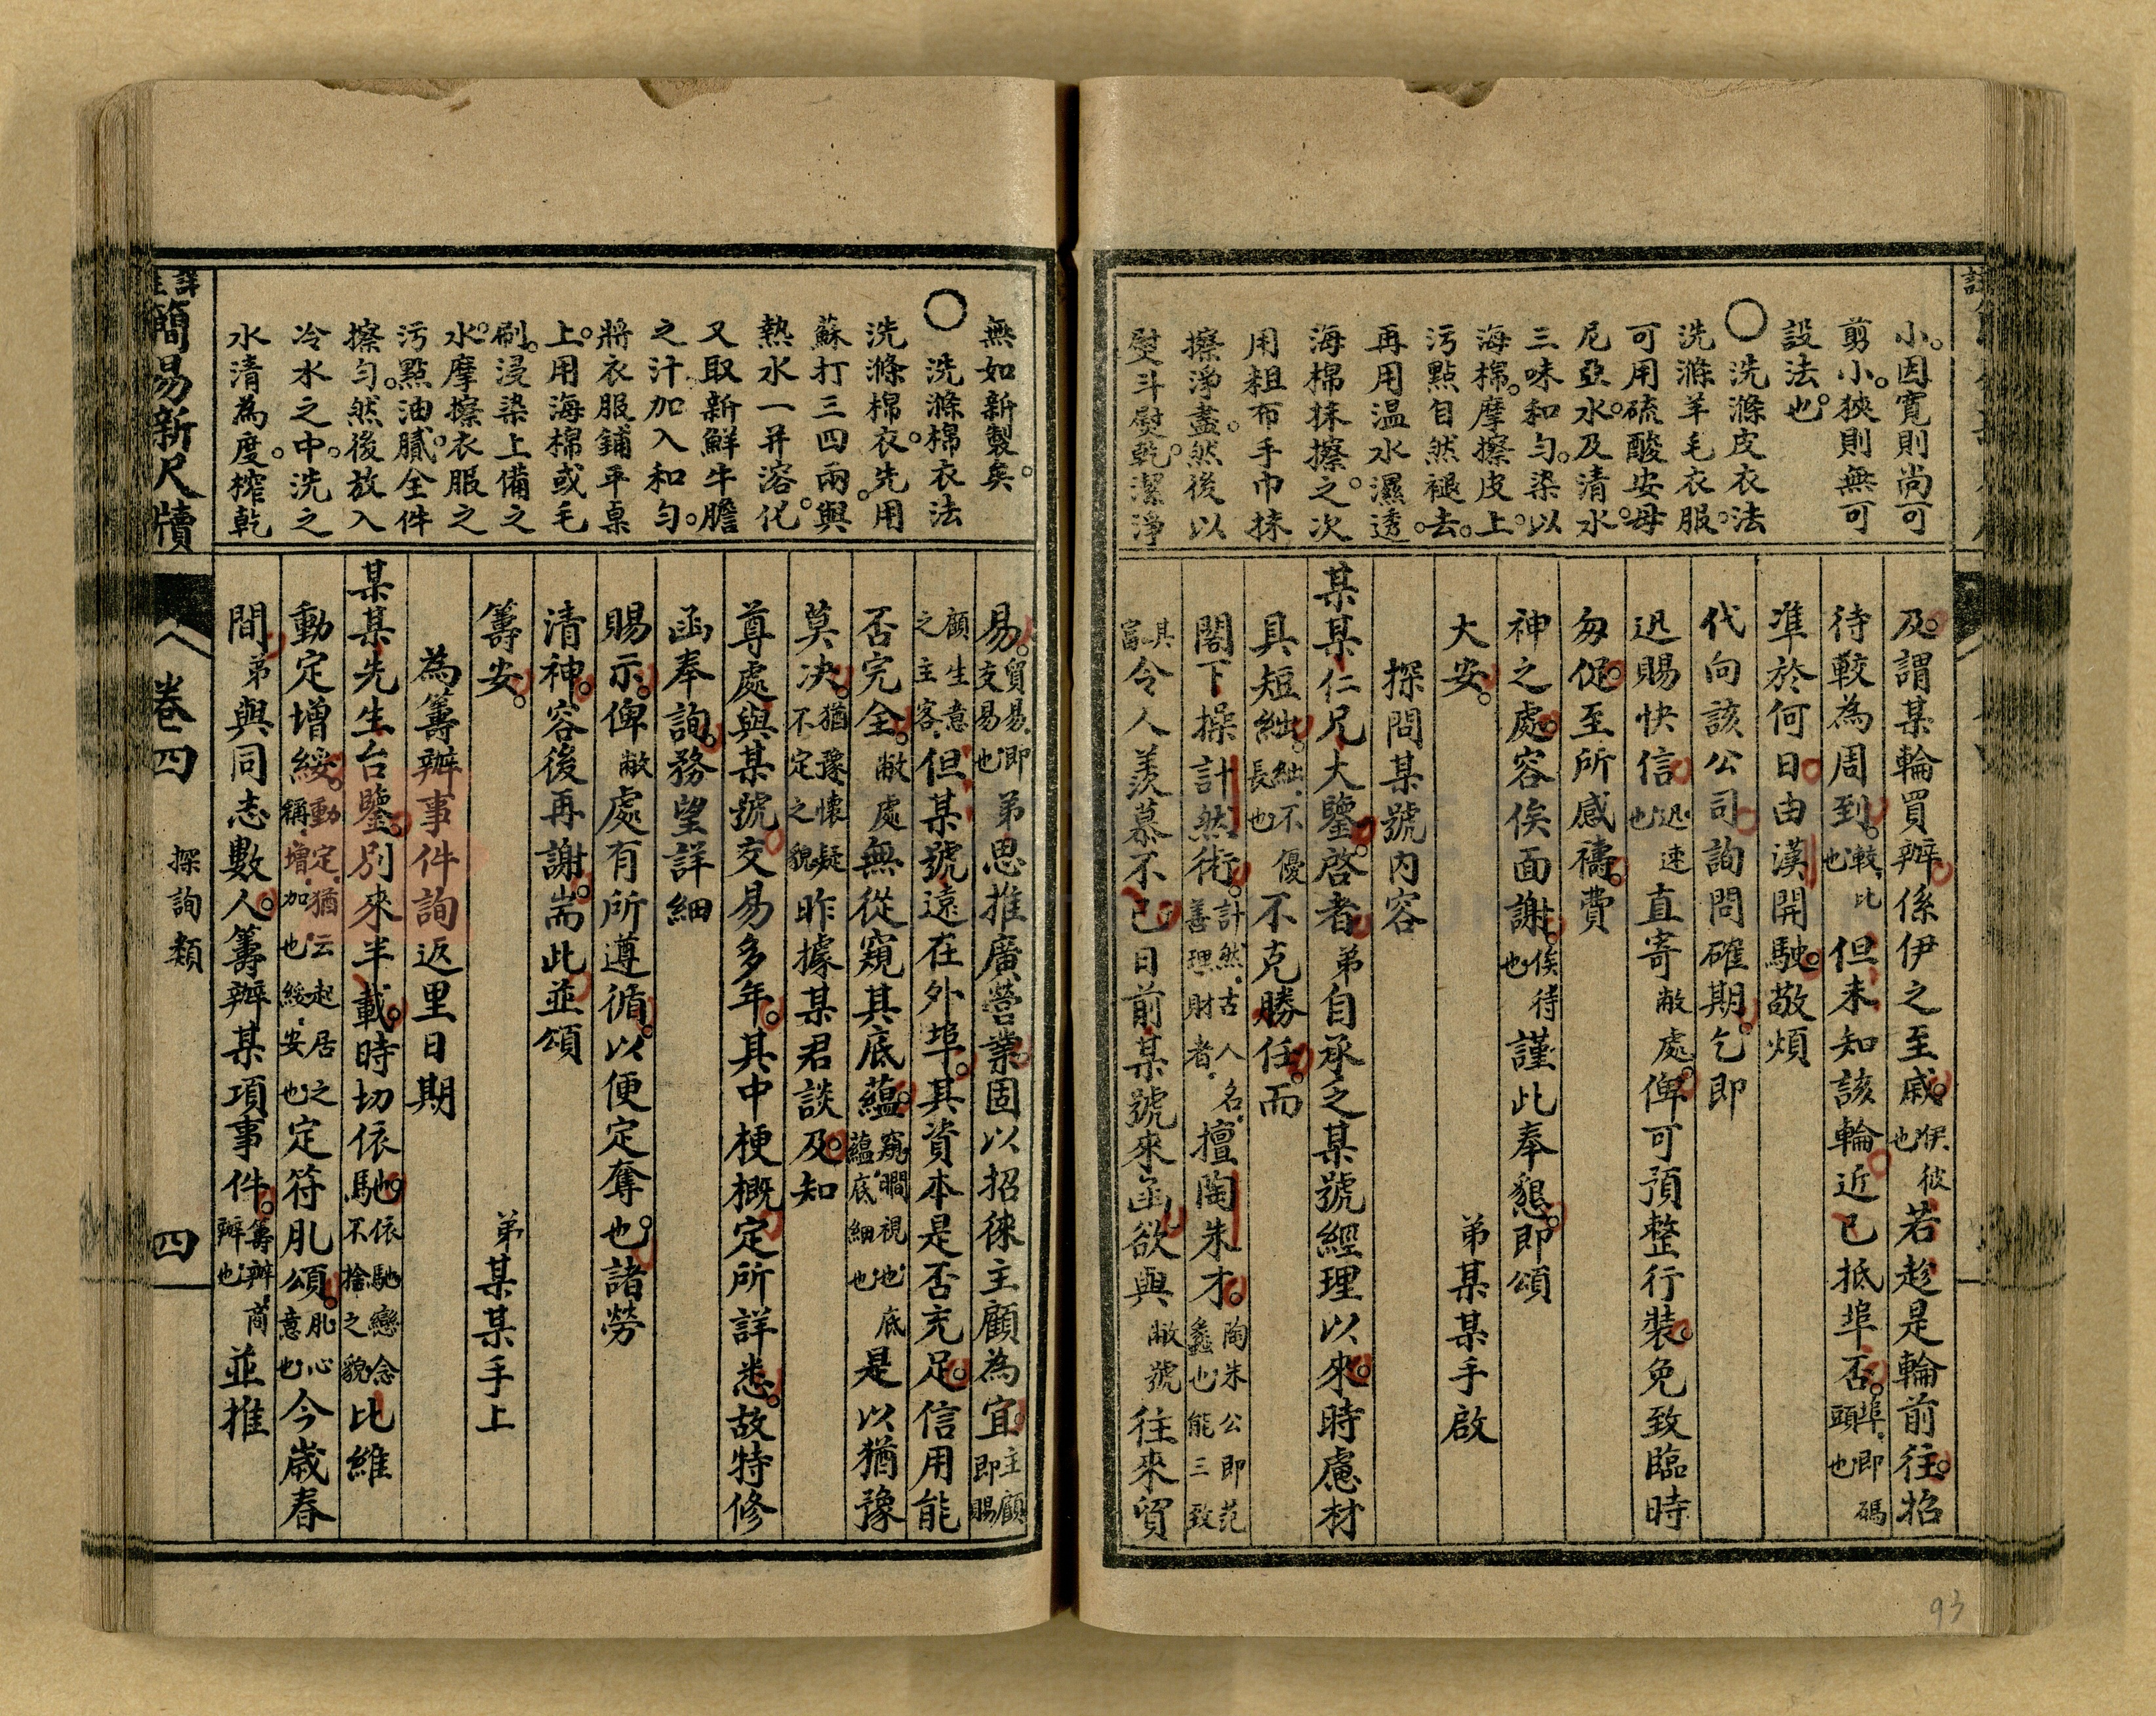 小。因寬則尚可
剪小。狹則無可
設法也。
○洗滌皮衣法
洗滌羊毛衣服。
可用硫酸安母
尼亞水。及清水。
三味和勻。染以
海棉。摩擦皮上。
污點自然褪去。
再用温水濕透。
海棉抹擦之。次
用粗布手巾抹
擦淨盡。然後以
熨斗熨乾。潔淨
及。謂某輪買辦。係伊之至戚。俟彼也若趁是輪前往。招
待較為周到。較比也但未知該輪近已抵埠否。埠即碼頭也
準於何日。由漢開駛。敬煩
代向該公司。詢問確期。乞即
迅賜快信。迅速也直寄敝處。俾可預整行裝。免致臨時
匆促。至所感禱。費
神之處。容俟面謝。俟待也謹此奉懇。即頌
大安。 弟某某手啟
探問某號內容
某某仁兄大鑒。啓者。弟自承乏某號經理以來。時慮材
具短絀。絀不優長也不克勝任。而
閣下操計然術。計然古人名善理財者擅陶朱才。陶朱公即范蠡也能三致
其富令人羨慕不已。日前某號來函。欲與敝號往來貿
無如新製矣。
○洗滌棉衣法
洗滌棉衣。先用
蘇打三四兩。與
熱水一并溶化。
又取新鮮牛膽
之汁加入和勻。
將衣服鋪平桌
上。用海棉或毛
刷。浸染上備之
水。摩擦衣服之
污點油膩。全件
擦勻。然後放入
冷水之中。洗之
水清為度。榨乾
易。貿易即支易也弟思推廣營業。固以招徠主顧為宜。主顧即賜
顧生意之主客但某號遠在外埠。其資本是否充足。信用能
否完全。敝處無從窺其底蘊。窺瞷視也底蘊底細也是以猶豫
莫决。猶豫懷疑不定之貌昨據某君談及。知
尊處與某號。交易多年。其中梗概。定所詳悉。故特修
函奉詢。務望詳細
賜示。俾敝處有所遵循。以便定奪也。諸勞
清神。容後再謝。耑此。並頌
籌安。 弟某某手上
為籌辦事件詢返里日期
某某先生台鑒。別來半載。時切依馳。依馳戀念不捨之貌比維
動定增綏。動定猶云起居之稱增加也綏安也定符肊頌。肊心意也今歲春
間。弟與同志數人。籌辦某項事件。籌辦商辦也並推
詳註簡易新尺牘
卷四
探詢類
四
93